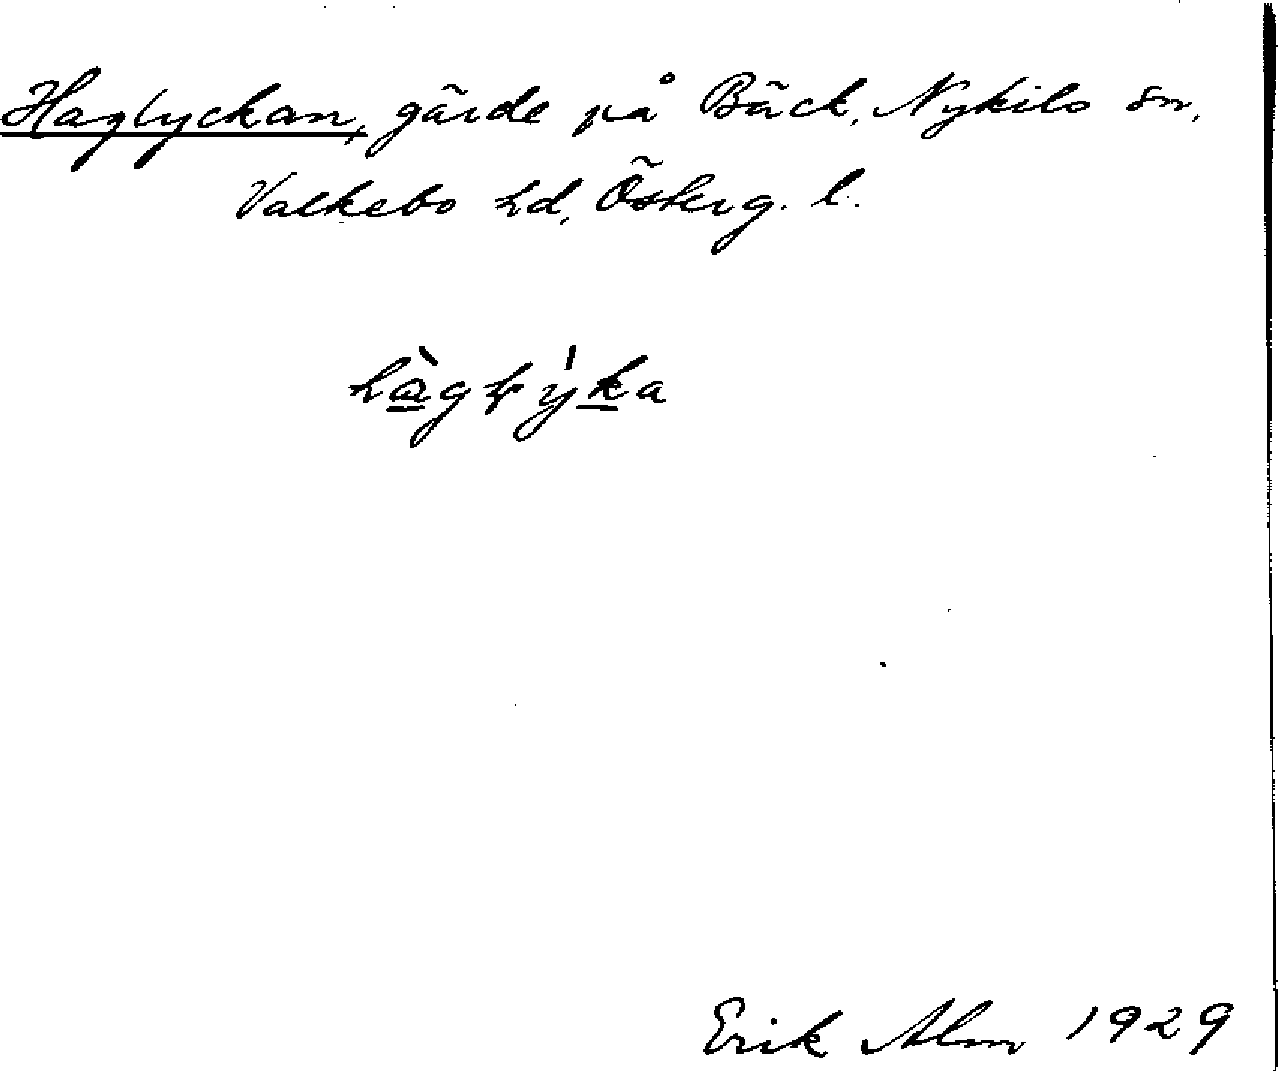 Haglyckan, gärde på Bäck, Nykils sn,
Valkebo hd, Österg. l.
hàglýka
Erik Alm 1929